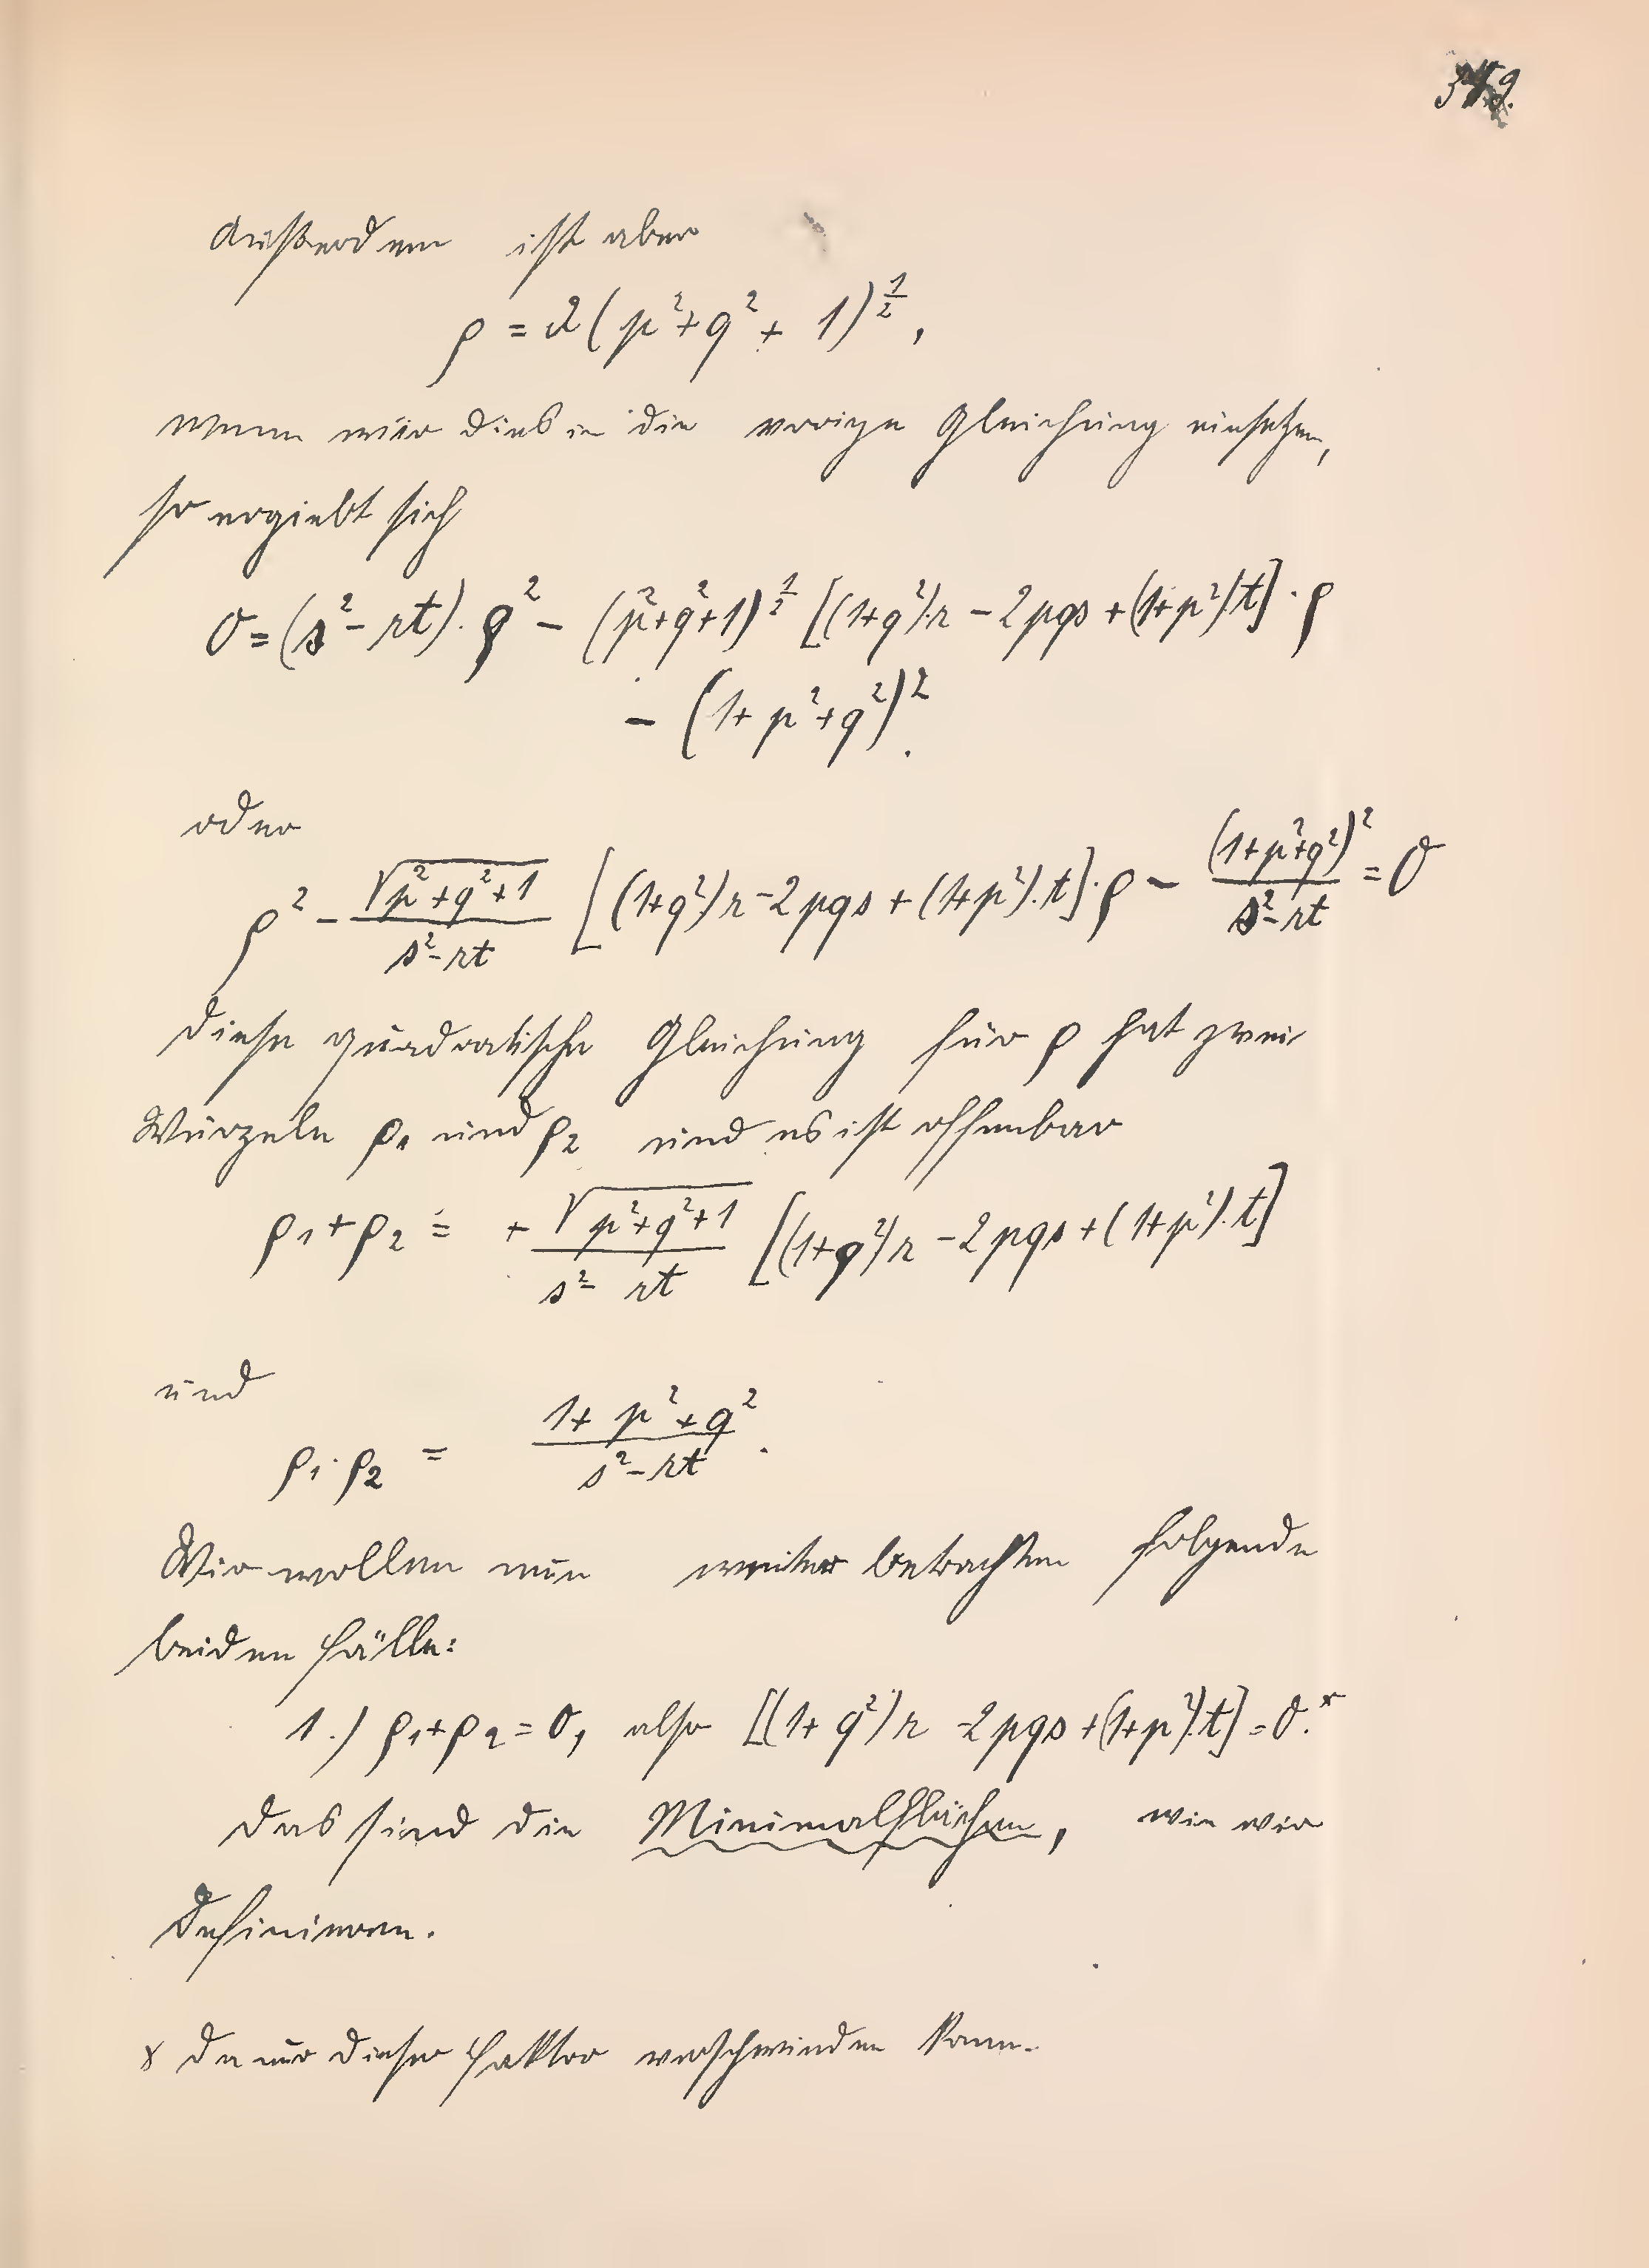 Außerdem ist aber
ρ = λ(p²+q²+ 1)^{1/2},
wenn wir dies in die vorige Gleichung einsetzen,
so ergiebt sich
0=(s²-rt)·ρ² - (p²+q²+1)^{1/2} [(1+q²)·r - 2pqs +(1+p²)t]·ρ
- (1+ p²+q²)².
oder
ρ² - \frac{\sqrt{p²+q²+1}}{s²-rt} [(1+q²)r -2pqs + (1+p²)·t]·ρ - \frac{(1+p²+q²)²}{s²-rt} = 0
diese quadratische Gleichung für ρ hat zwei
Wurzeln ρ₁ und ρ₂ und es ist offenbar
ρ₁+ρ₂ = + \frac{\sqrt{p²+q²+1}}{s²- rt} [(1+q²)r -2pqs +(1+p²)·t]
und
ρ₁·ρ₂ = \frac{1+ p²+q²}{s²-rt}.
Wir wollen nun weiter betrachten folgende
beiden Fälle:
1.) ρ₁+ρ₂=0, also [(1+ q²)r -2pqs +(1+p²)·t] = 0.ˣ
das sind die Minimalflächen, wie wir
definieren.
x da nur dieser Faktor verschwinden kann.